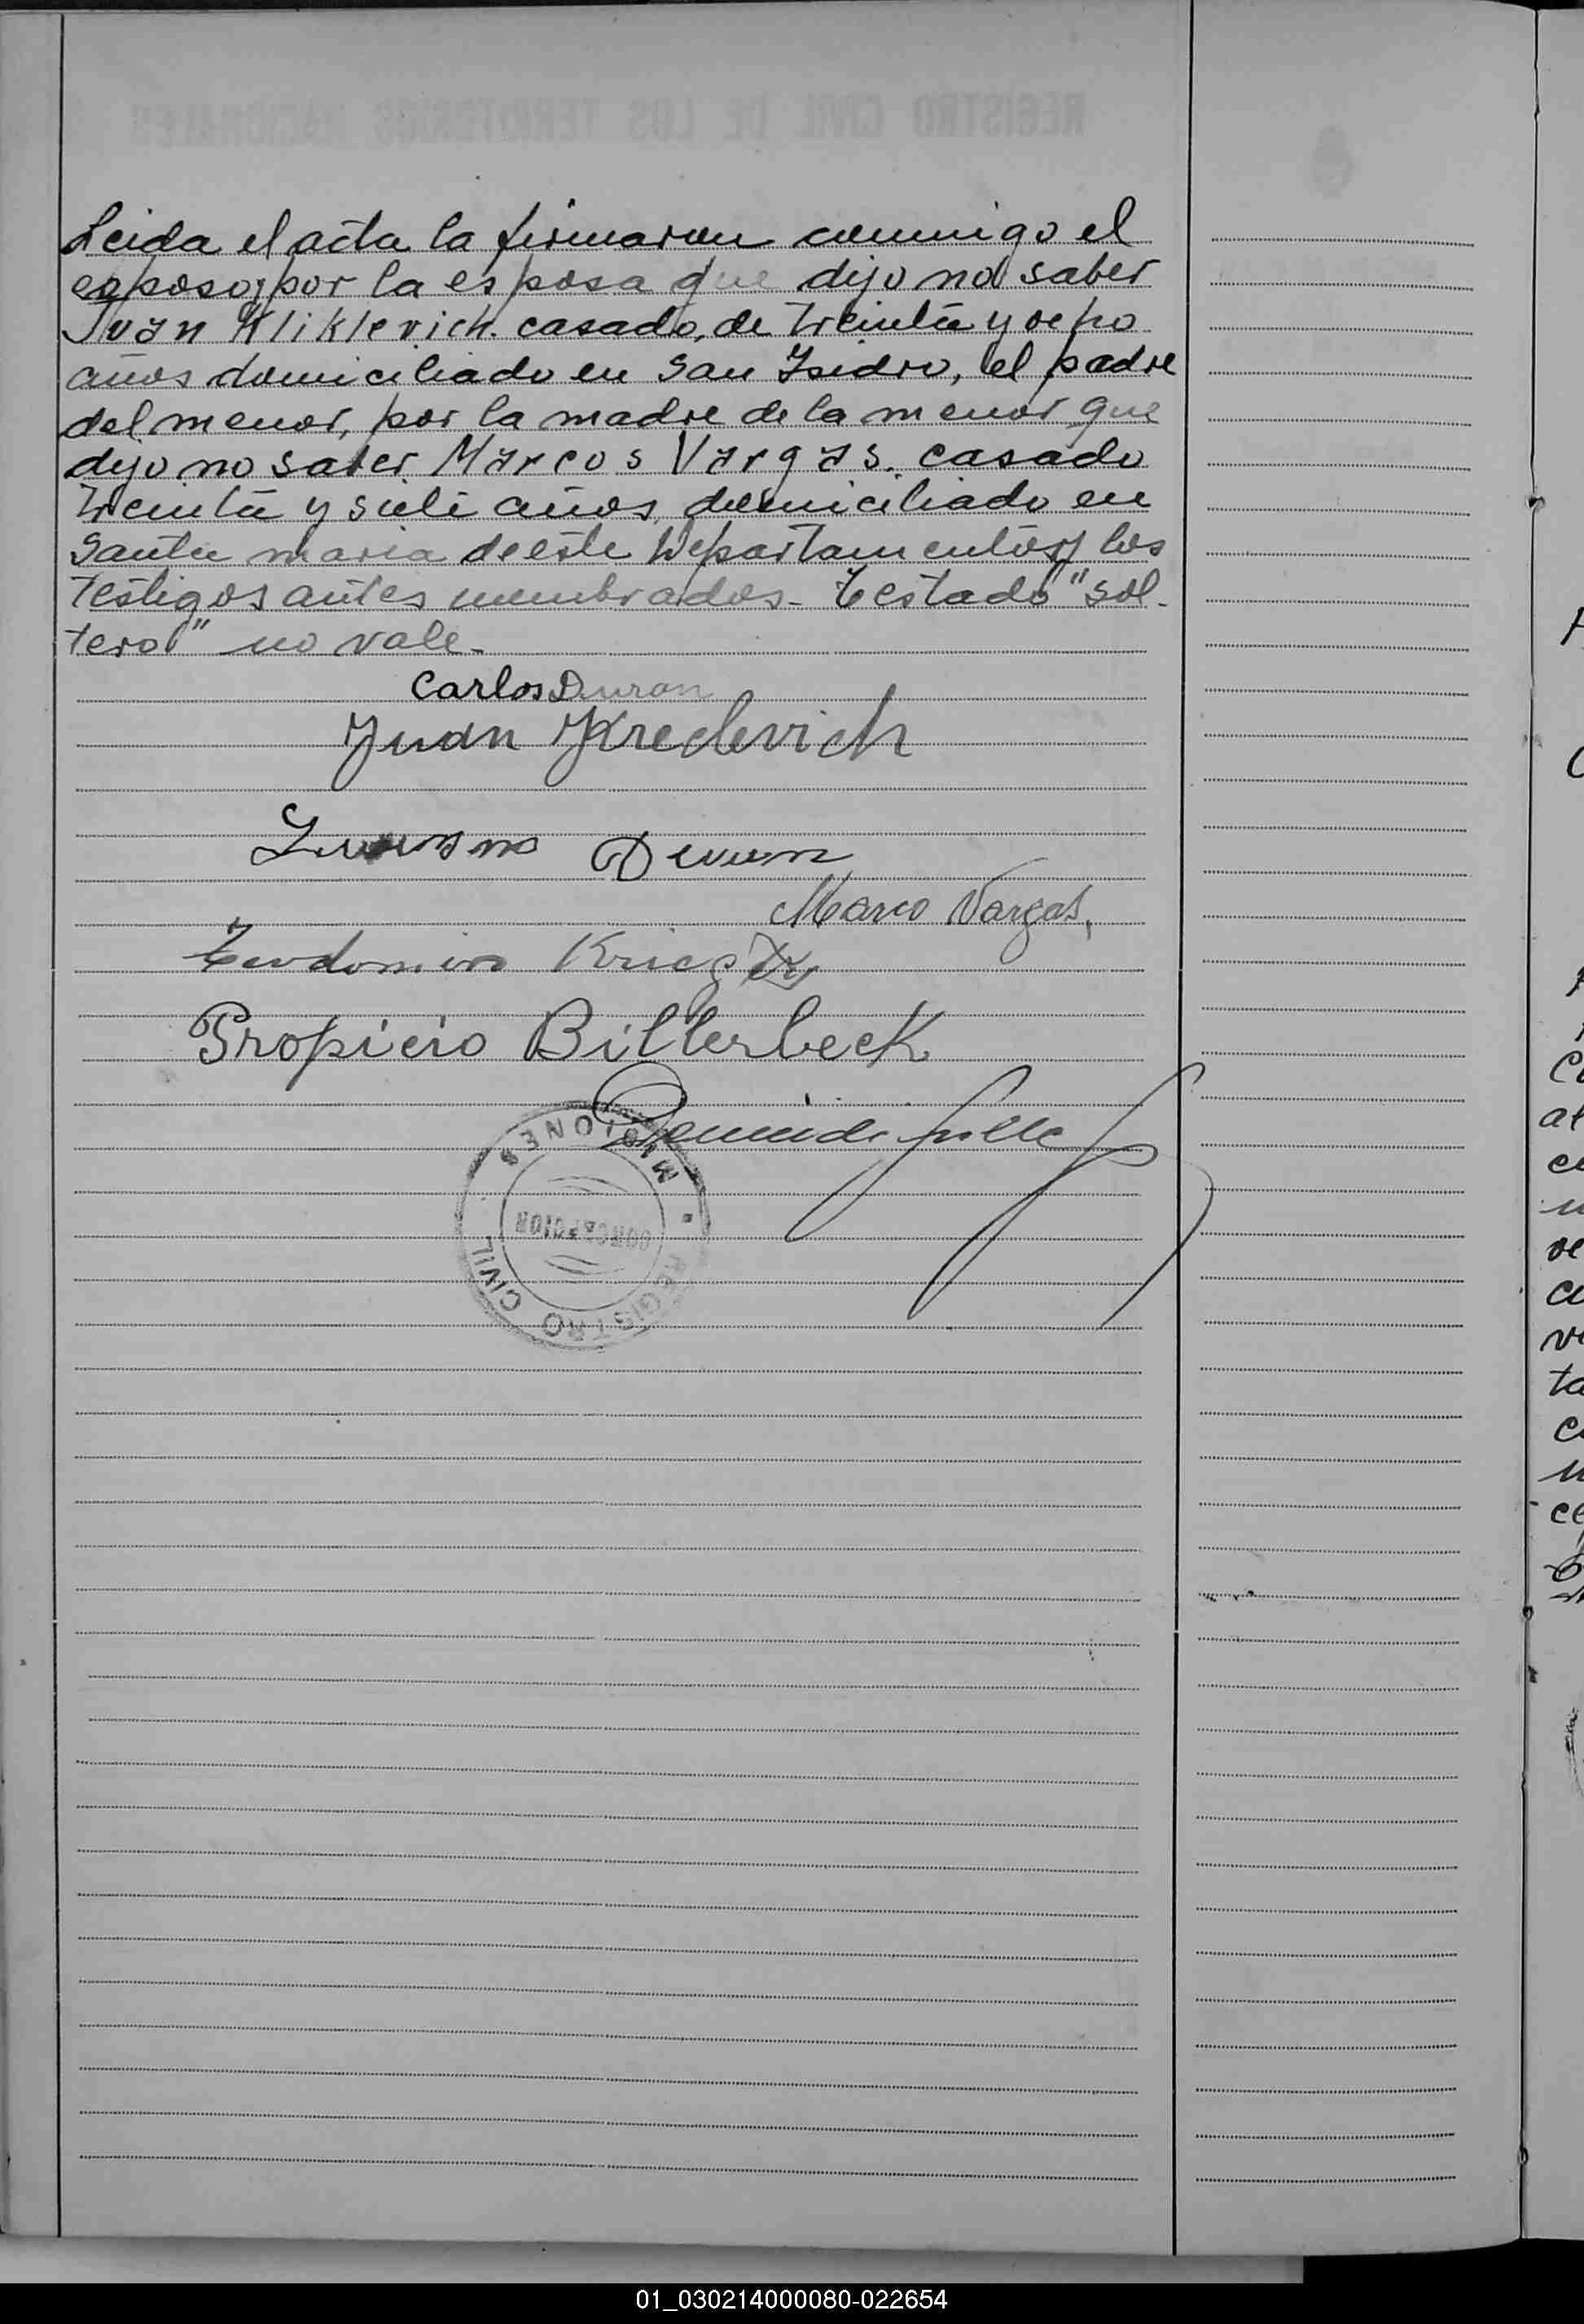 REGISTRO CIVIL DE LOS TERRITORIOS NACIONALES
Leida el acta la firmaron conmigo el
esposo, por la esposa que dijo no saber
Iván Kliklevich. casado, de treinta y ocho
años domiciliado en San Isidro, el padre
del menor, por la madre de la menor que
dijo no saber Marcos Vargas. casado
treinta y siete años, domiciliado en
Santa maria de este Departamento y los
testigos antes nombrados - Testado "sol-
tero" no vale -
Carlos Duran
Juan Kreclevich
Duran
Marco Vargas,
Teodomiro Krieger
Propicio Billerbeck
MISIONES
CONCEPCION
REGISTRO CIVIL
01_030214000080-022654